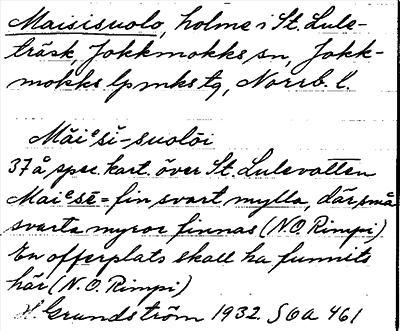 Maisisuolo, holme i St. Lule-
träsk, Jokkmokks sn, Jokk-
mokks lpmks tg, Norrb. l.
Măiᵉsĭ-suolōi
37 å spec. kart. över St. Lulevatten
Maiᵉsē = fin svart mylla, där små
svarta myror finnas (N.O. Rimpi)
En offerplats skall ha funnits
här (N.O. Rimpi)
H. Grundström 1932 S 6a 461